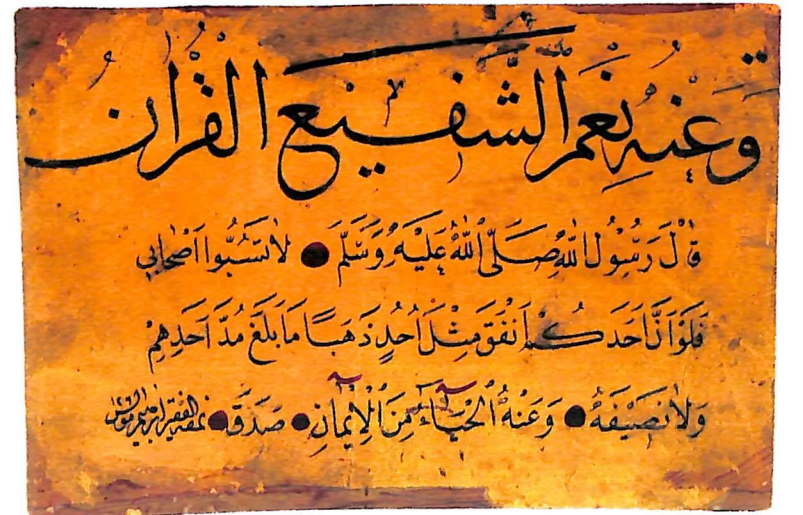 وَعَنْهُ نِعْمَ الشَّفِيعُ الْقُرْآنُ
قَالَ رَسُولُ اللّٰهِ صَلَّى اللّٰهُ عَلَيْهِ وَسَلَّمَ ● لَا تَسُبُّوا اَصْحَابِي
فَلَوْ اَنَّ اَحَدَكُمْ اَنْفَقَ مِثْلَ اُحُدٍ ذَهَبًا مَا بَلَغَ مُدَّ اَحَدِهِمْ
وَلَا نَصِيفَهُ ● وَعَنْهُ الْحَيَاءُ مِنَ الْاِيمَانِ ● صَدَقَ ● نمقه الفقير